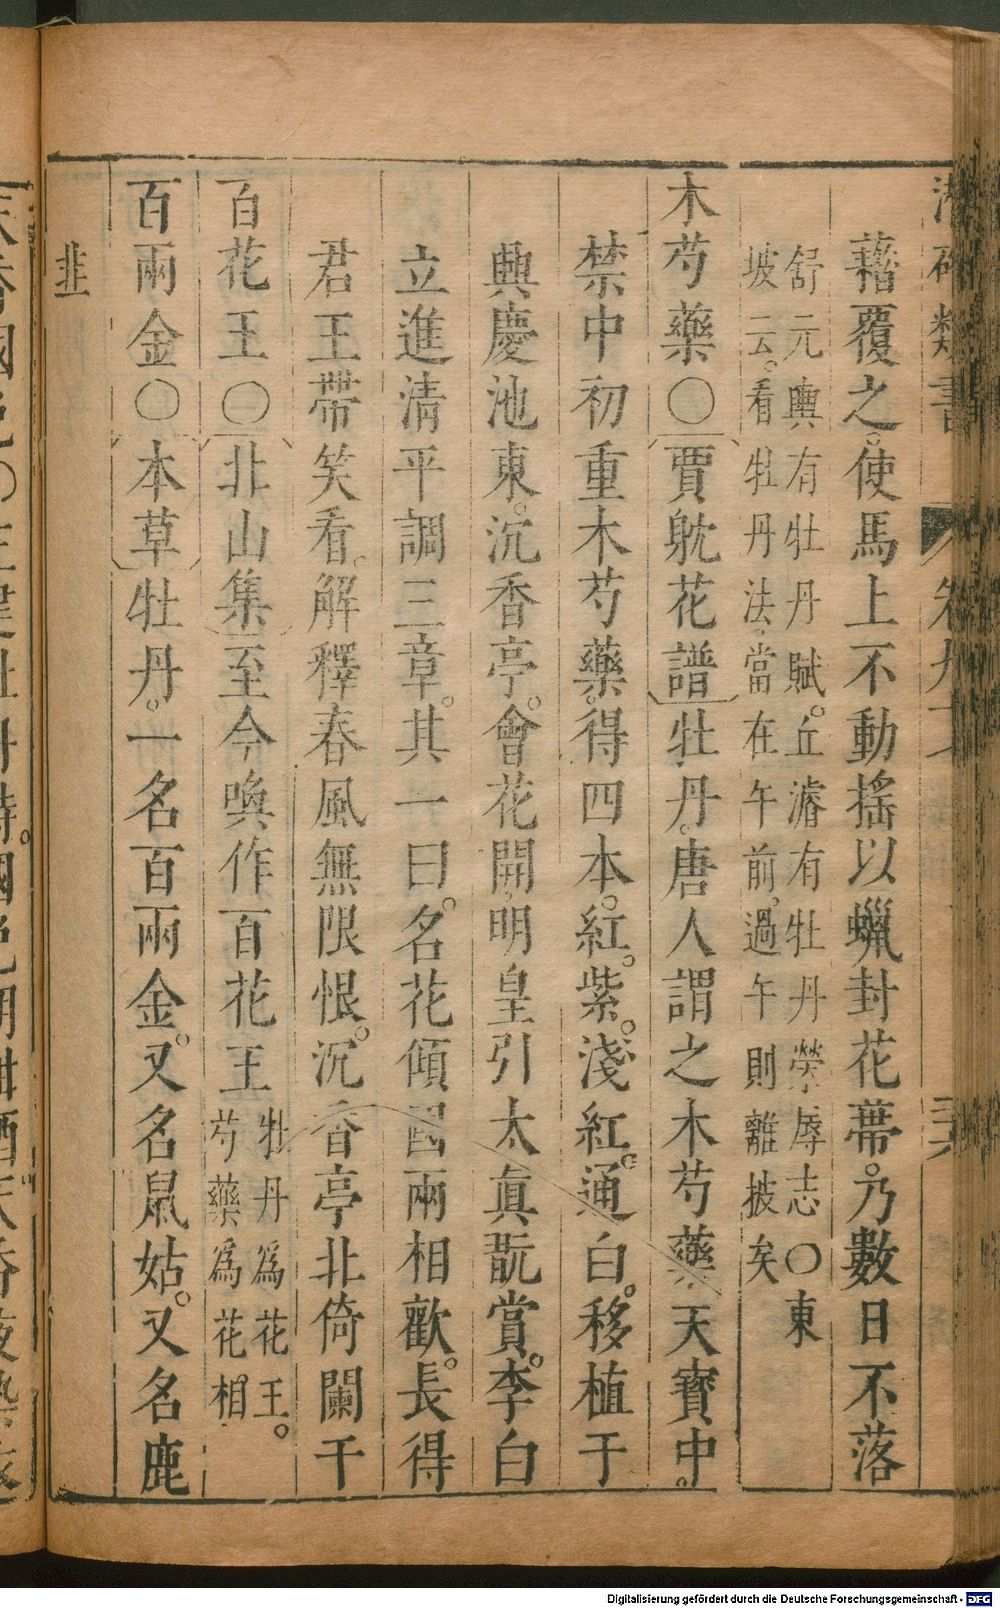 藉覆之使馬上不動搖以蠟封花蔕乃數日不落
舒元輿有牡丹賦丘濬有牡丹榮辱志〇東
坡云看牡丹法當在午前過午則離披矣
木芍藥〇賈躭花譜牡丹唐人謂之木芍藥天寶中
禁中初重木芍藥得四本紅紫淺紅通白移植于
興慶池東沉香亭會花開明皇引太眞翫賞李白
立進清平調三章其一曰名花傾國兩相歡長得
君王帶笑看解釋春風無限恨沉香亭北倚闌干
百花王〇北山集至今喚作百花王
牡丹爲花王
芍藥爲花相
百兩金〇本草牡丹一名百兩金又名鼠姑又名鹿
韭
Digitalisierung gefördert durch die Deutsche Forschungsgemeinschaft - DFG